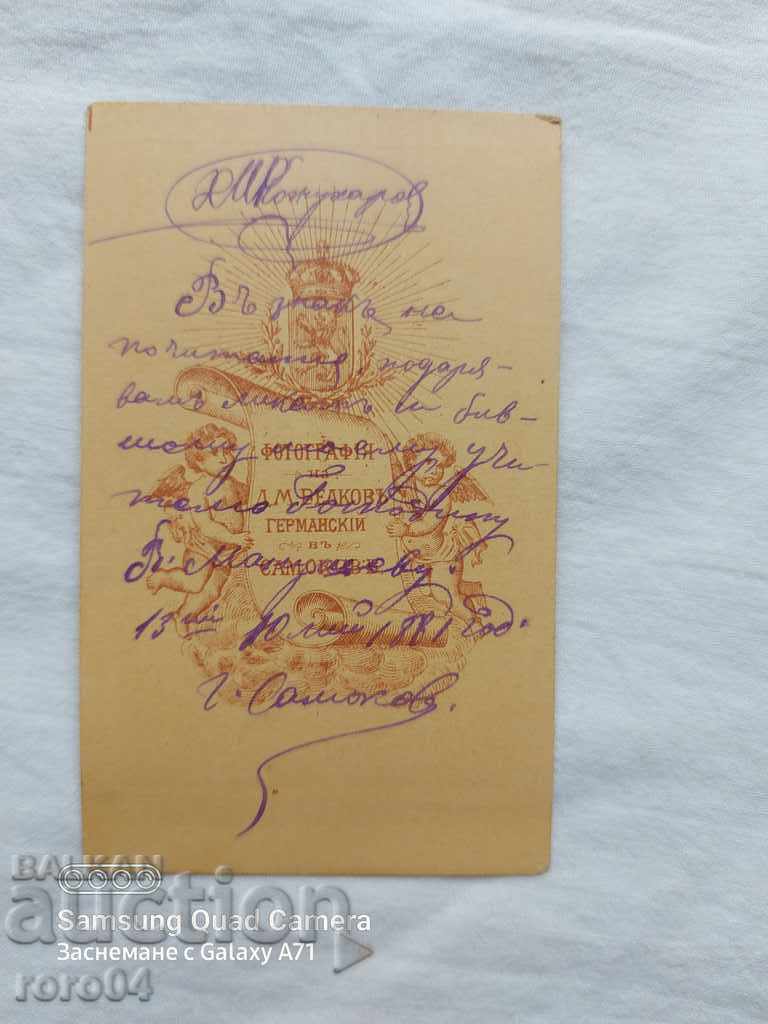 Кожухаров
Въ знакъ на
почитание, подаря-
вамъ ликътъ си бив-
шому моему учи-
телю Господину
В. Манчеву.
13ий Юлий 1881 год.
г. Самоков.
ФОТОГРАФІЯ
НА
Д.М. ВЕЛКОВЪ
ГЕРМАНСКІЙ
ВЪ
САМОКОВЪ
BALKAN
auction
roro04
Samsung Quad Camera
Заснемане с Galaxy A71